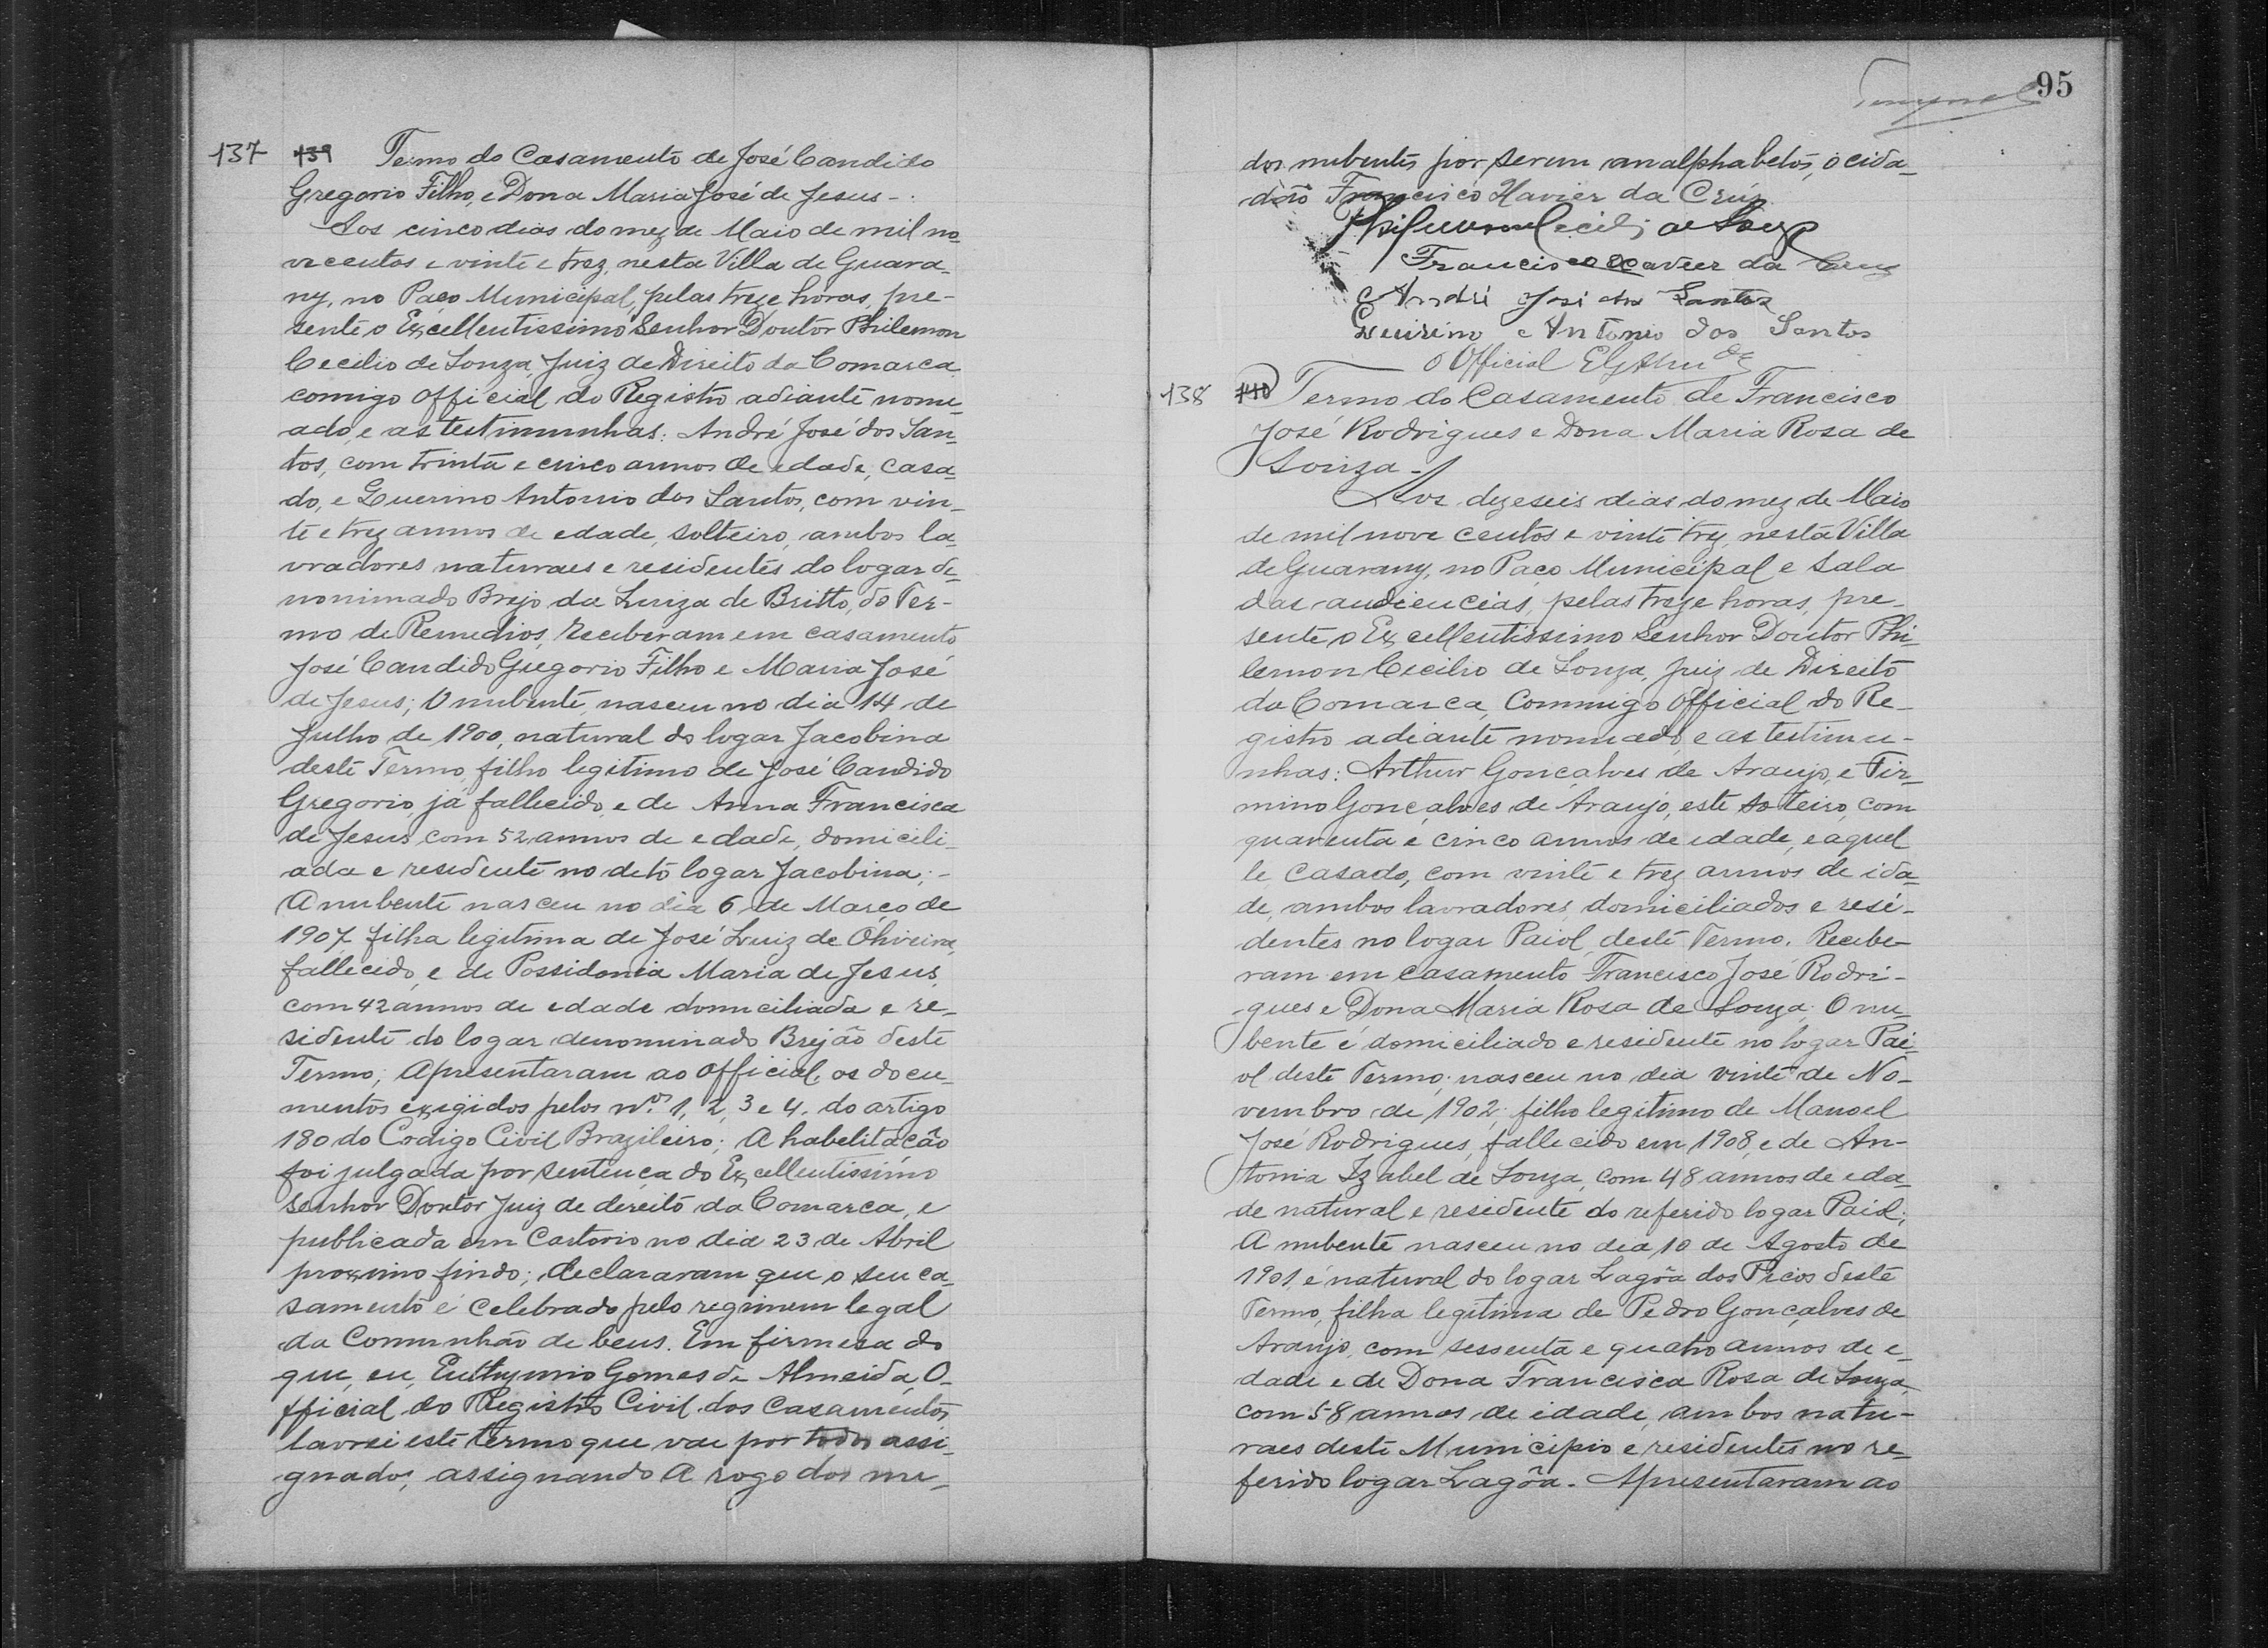 137 139 Termo do Casamento de José Candido
Gregorio Filho, e Dona Maria José de Jesus -.
Aos cinco dias do mez de Maio de mil no-
vecentos e vinte e trez, nesta Villa de Guara-
ny, no Paço Municipal, pelas treze horas, pre-
sente o Excellentissimo Senhor Doutor Philemon
Cecilio de Souza, Juiz de Direito da Comarca
comigo Official do Registro adiante nome-
ado, e as testimunhas: André José dos San-
tos, com trinta e cinco annos de edade, casa-
do, e Guerino Antonio dos Santos, com vin-
te e trez annos de edade, solteiro, ambos la-
vradores naturaes e residentes do logar de-
nominado Brejo da Luiza de Britto, do Ter-
mo de Remedios, receberam em casamento
José Candido Gregorio Filho e Maria José
de Jesus; O nubente, nasceu no dia 14 de
Julho de 1900, natural do logar Jacobina
deste Termo, filho legitimo de José Candido
Gregorio, já fallecido, e de Anna Francisca
de Jesus, com 52 annos de edade, domicili-
ada e residente no dito logar Jacobina; -
A nubente nasceu no dia 6 de Março de
1907, filha legitima de José Luiz de Oliveira,
fallecido, e de Possidonia Maria de Jesus,
com 42 annos de edade domiciliada e re-
sidente do logar denominado Brejão deste
Termo; Apresentaram ao official, os docu-
mentos exegidos pelos nºs 1, 2, 3 e 4. do artigo
180 do Codigo Civil Brazileiro; A habelitação
foi julgada por sentença do Excellentissimo
Senhor Doutor Juiz de dereito da Comarca, e
publicada em Cartorio no dia 23 de Abril
proximo findo; declararam que o seu ca-
samento é celebrado pelo regimem legal
da Communhão de bens. Em firmesa do
que, eu, Euthymio Gomes de Almeida, O-
fficial do Registro Civil dos Casamentos
lavrei este termo que vae por todos assi-
gnados, assignando A rogo dos nu-
95
dos nubentes por serem analphabetos, o cida-
dão Francisco Xavier da Cruz.
Philemon Cecilio de Souza
Francisco Xavier da Cruz
André José dos Santos
Guirino Antonio dos Santos
O Official
138 140 Termo do Casamento de Francisco
José Rodrigues e Dona Maria Rosa de
Souza -
Aos dezeseis dias do mez de Maio
de mil nove centos e vinte trez, nesta Villa
de Guarany, no Paço Municipal e Sala
das audiencias, pelas treze horas, pre-
sente o Excellentissimo Senhor Doutor Phi-
lemon Cecilio de Souza, Juiz de Direito
da Comarca, Commigo Official do Re-
gistro adiante nomeado, e as testimu-
nhas: Arthur Gonçalves de Araujo, e Fir-
mino Gonçalves de Araujo, este solteiro, com
quarenta e cinco annos de edade, e aquel
le Casado, com vinte e trez annos de ida-
de, ambos lavradores, domiciliados e resi-
dentes no logar Paiol, deste Termo. Recebe-
ram em casamento Francisco José Rodri-
gues e Dona Maria Rosa de Souza; O nu-
bente é domiciliado e residente no logar Pai-
ol deste Termo, nasceu no dia vinte de No-
vembro de 1902, filho legitimo de Manoel
José Rodrigues, fallecido em 1908, e de An-
tonia Izabel de Souza, com 48 annos de eda-
de natural e residente do referido logar Paiol;
A nubente nasceu no dia 10 de Agosto de
1901, é natural do logar Lagôa dos Picos deste
Termo, filha legitima de Pedro Gonçalves de
Araujo, com sessenta e quatro annos de e-
dade e de Dona Francisca Rosa de Souza,
com 58 annos de idade, ambos natu-
raes deste Municipio e residentes no re-
ferido logar Lagôa. Apresentaram ao